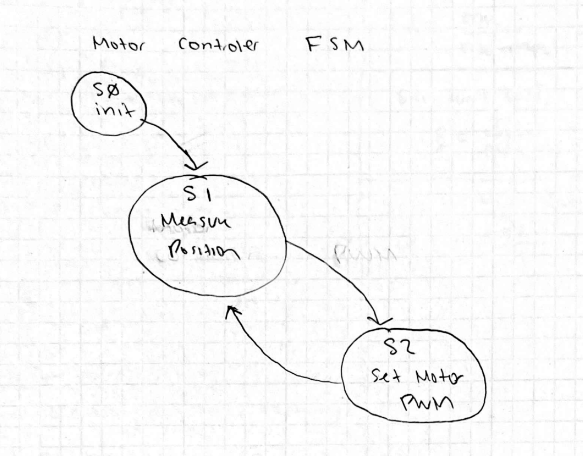 Motor Controler FSM
SØ
init
S1
Measure
Position
S2
Set Motor
PWM